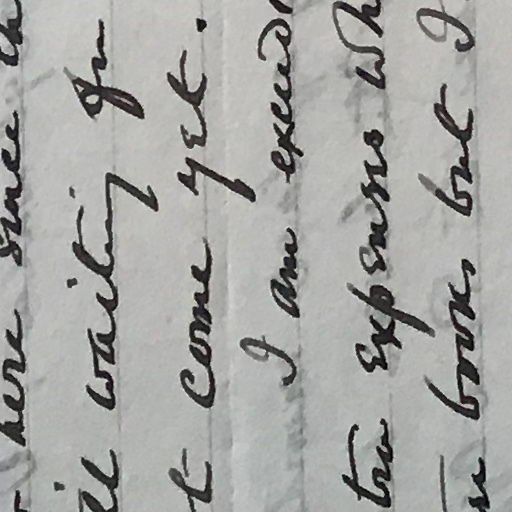 here since th
ill waiting for
t come yet.
I am exceed
tra expenses wh
books but I